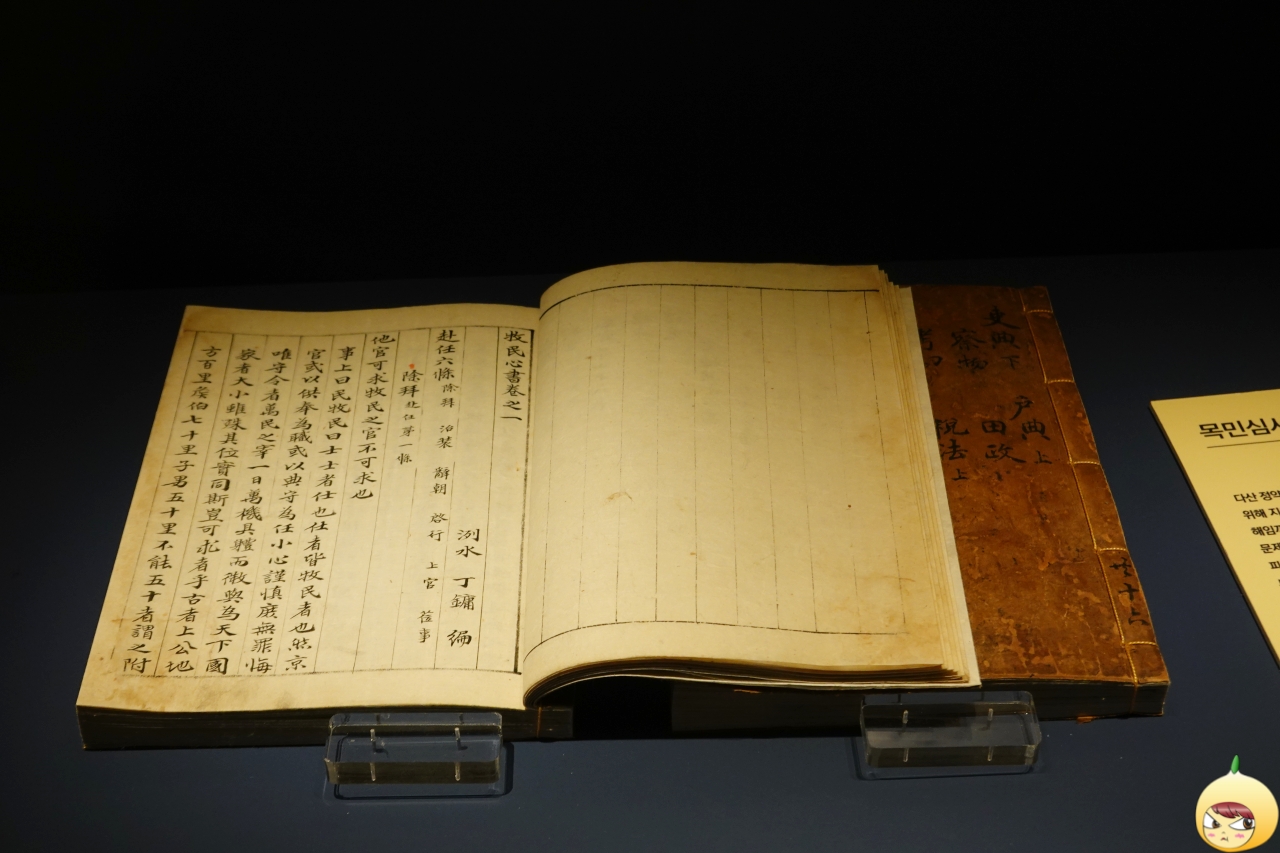 牧民心書卷之一
洌水 丁鏞 編
赴任六條 除拜 治裝 辭朝 啓行 上官 莅事
除拜 赴任第一條
他官可求牧民之官不可求也
事上曰民牧民曰士士者仕也仕者皆牧民者也然京
官或以供奉為職或以典守為任小心謹慎庶無罪悔
唯守令者萬民之宰一日萬機具軆而微與為天下國
家者大小雖殊其位實同斯豈可求者乎古者上公地
方百里侯伯七十里子男五十里不能五十者謂之附
吏典 下
察物
戶典 上
田政
稅法 上
共十六
목민심서
다산 정약
위해 지
해임까
문제